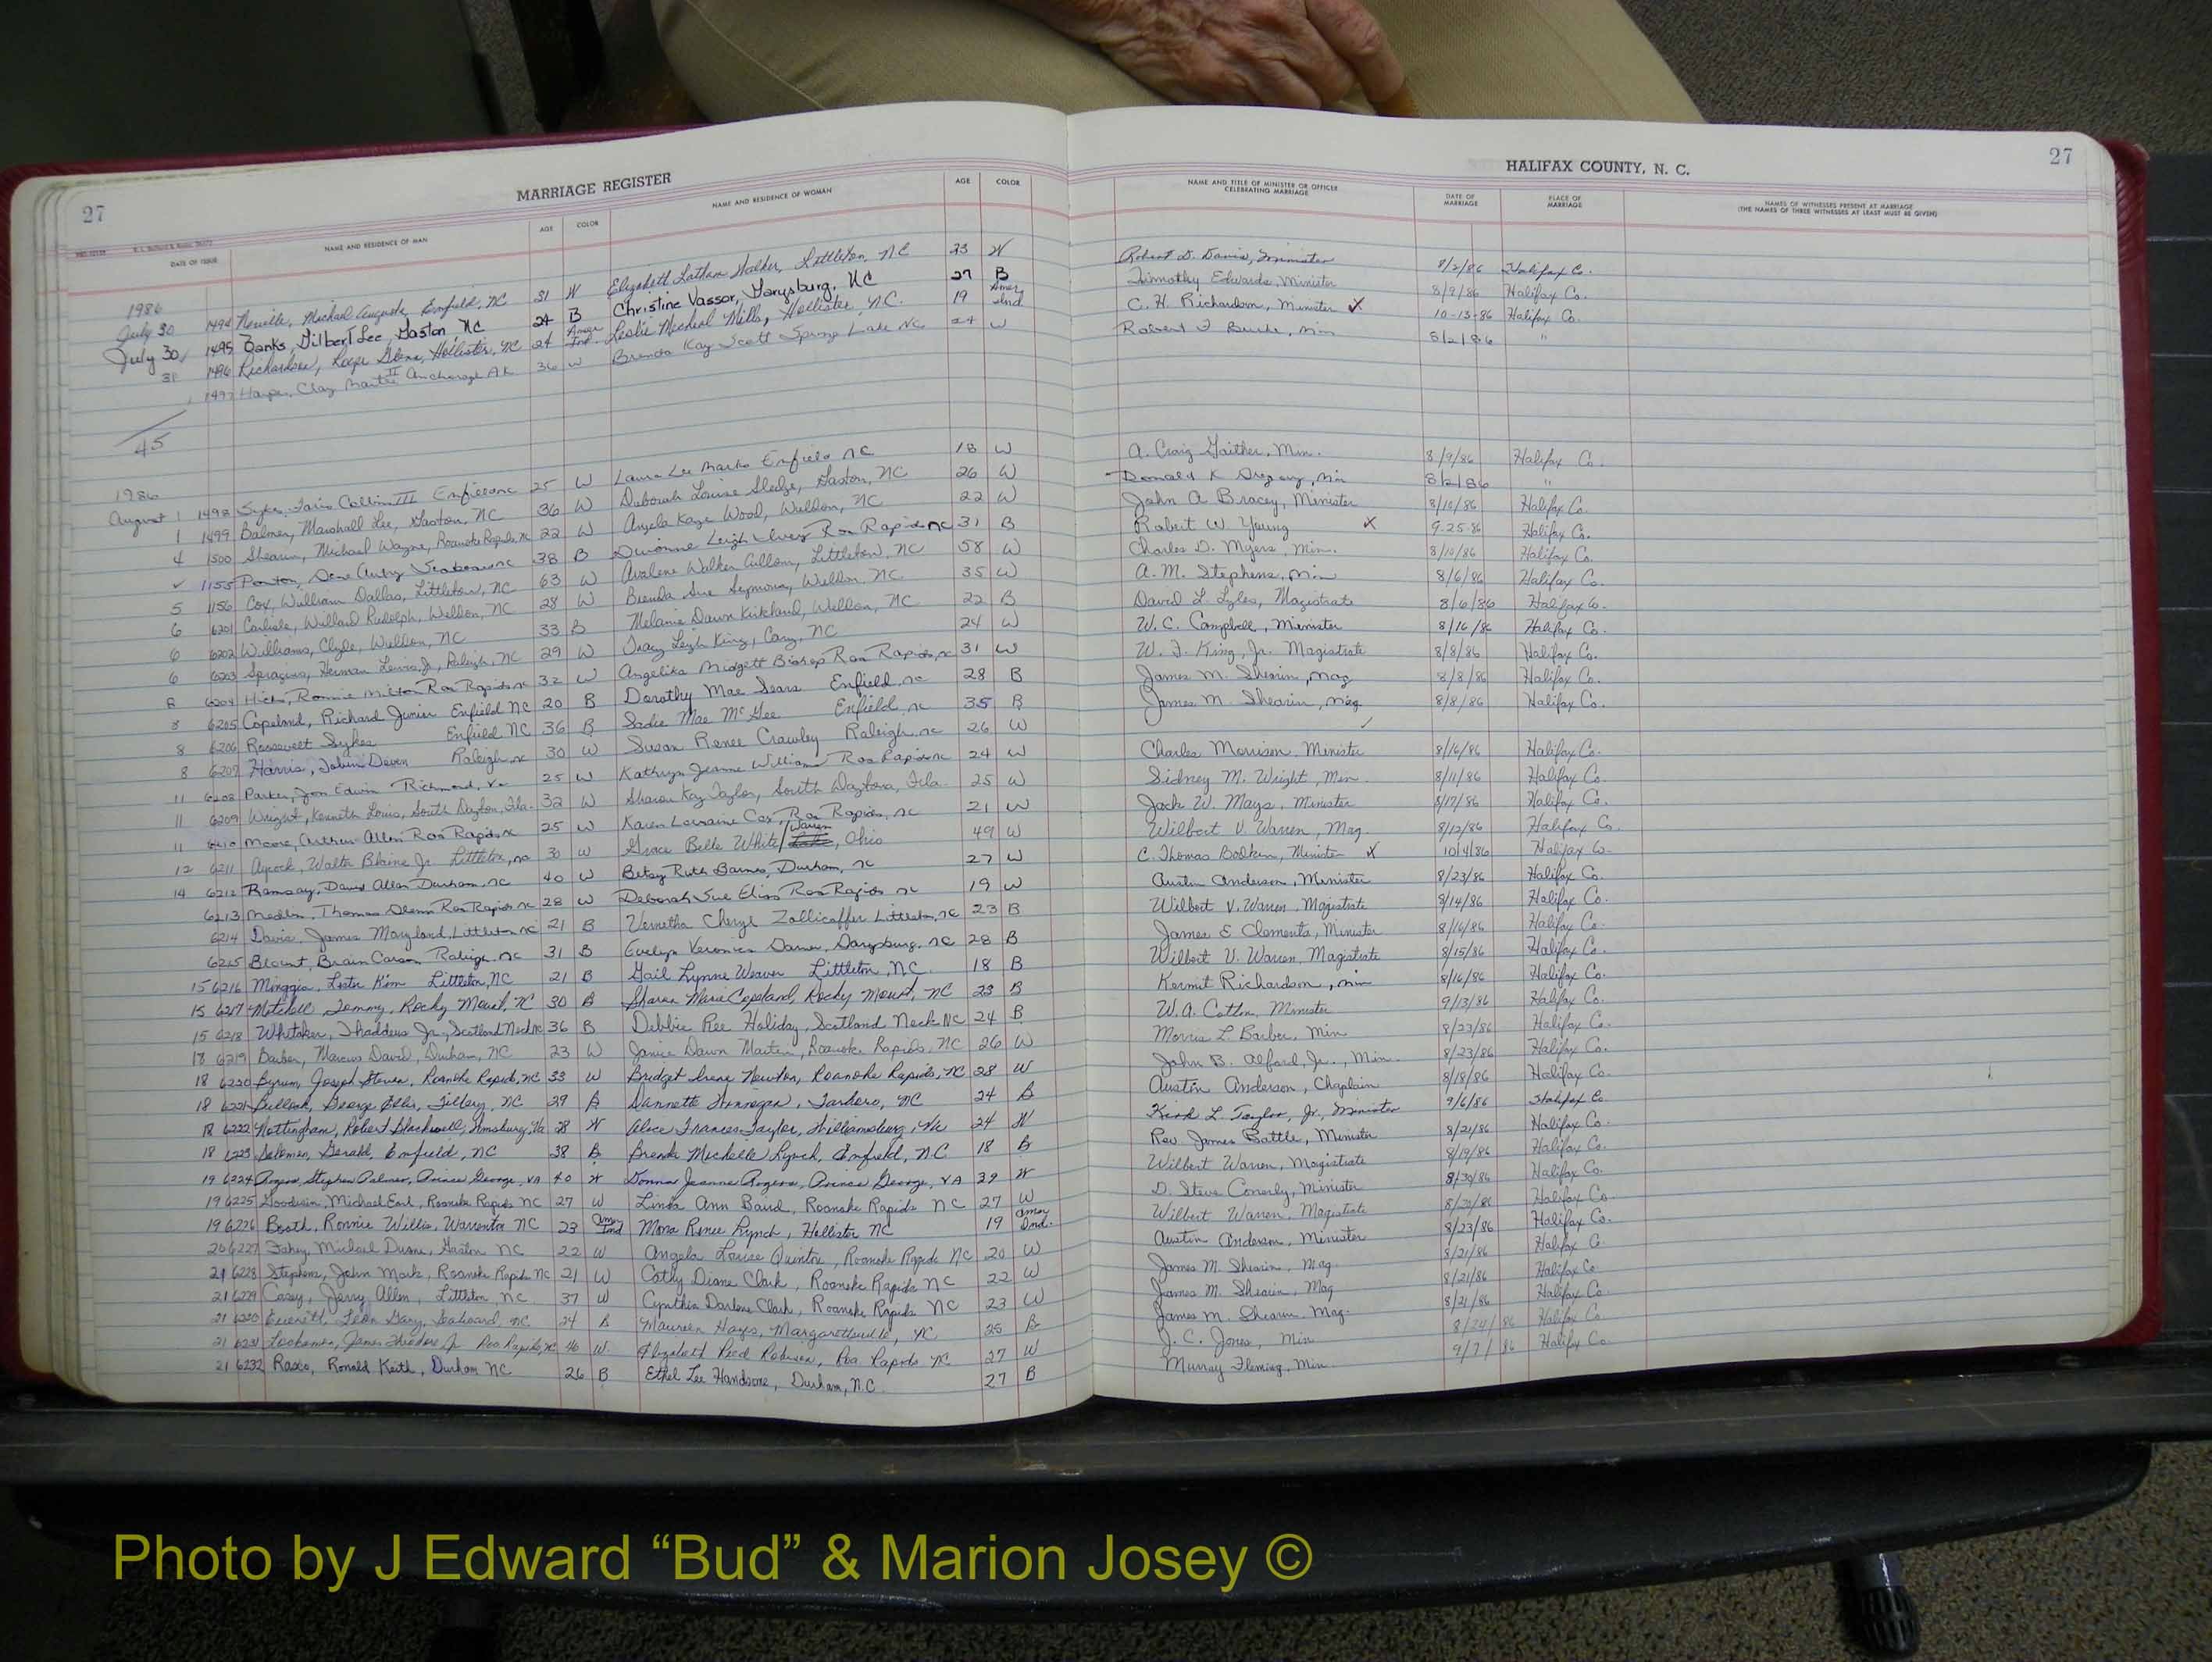 27
MARRIAGE REGISTER
DATE OF ISSUE NAME AND RESIDENCE OF MAN AGE COLOR NAME AND RESIDENCE OF WOMAN AGE COLOR
HALIFAX COUNTY, N. C.
27
NAME AND TITLE OF MINISTER OR OFFICER CELEBRATING MARRIAGE DATE OF MARRIAGE PLACE OF MARRIAGE NAMES OF WITNESSES PRESENT AT MARRIAGE (THE NAMES OF THREE WITNESSES AT LEAST MUST BE GIVEN)
1986
July 30 1494 Neville, Michael Auguste, Enfield, NC 31 W Elizabeth Latham Walker, Littleton, NC 23 W Robert D. Davis, Minister 8/2/86 Halifax Co.
July 30 1495 Banks, Gilbert Lee, Gaston, NC 24 B Christine Vassor, Garysburg, NC 27 B Timothy Edwards, Minister 8/9/86 Halifax Co.
31 1496 Richardson, Hollister, NC 24 Amer Ind. Leslie Micheal Mills, Hollister, N.C. 19 Amer Ind C. H. Richardson, Minister X 10-13-86 Halifax Co.
1497 Harper, Clay Martin II Anchorage AK 36 W Brenda Kay Scott Spring Lake NC 24 W Robert Burke, Min 8/2/86 "
45
1986
August 1 1498 Sykes, Collin III Enfield NC 25 W Laura Lee Marks Enfield NC 18 W A. Craig Gaither, Min. 8/9/86 Halifax Co.
1 1499 Balmer, Marshall Lee, Gaston, NC 36 W Deborah Louise Sledge, Gaston, NC 26 W Donald K Gregory, Min 8/2/86 "
4 1500 Shearin, Michael Wayne, Roanoke Rapids, NC 22 W Angela Kaye Wood, Weldon, NC 22 W John A Bracey, Minister 8/10/86 Halifax Co.
✓ 1155 NC 38 B Leigh Ivey Roa Rapids NC 31 B Robert W. Young X 9-25-86 Halifax Co.
5 1156 Cox, William Dallas, Littleton, NC 63 W Avalene Walker Cullom, Littleton, NC 58 W Charles D. Myers, Min. 8/10/86 Halifax Co.
6 6201 Carlisle, Willard Rudolph, Weldon, NC 28 W Brenda Sue Seymour, Weldon, NC 35 W A. M. Stephens, Min 8/6/86 Halifax Co.
6 6202 Williams, Clyde, Weldon, NC 33 B Melanie Dawn Kirkland, Weldon, NC 22 B David L. Lyles, Magistrate 8/6/86 Halifax Co.
6 6203 Herman Lewis Jr., Raleigh, NC 29 W Tracy Leigh King, Cary, NC 24 W W. C. Campbell, Minister 8/16/86 Halifax Co.
8 6204 Hicks, Ronnie Milton Roa Rapids NC 32 W Angelika Midgett Bishop Roa Rapids, NC 31 W W. J. King, Jr. Magistrate 8/8/86 Halifax Co.
8 6205 Copeland, Richard Junior Enfield NC 20 B Dorothy Mae Sears Enfield, NC 28 B James M. Shearin, Mag 8/8/86 Halifax Co.
8 6206 Roosevelt Sykes Enfield NC 36 B Sadie Mae McGee Enfield, NC 35 B James M. Shearin, Mag 8/8/86 Halifax Co.
8 6207 Harris, Devon Raleigh, NC 30 W Susan Renee Crawley Raleigh, NC 26 W ✓
11 6208 Parker, Jon Edwin Richmond, Va 25 W Kathryn Jeanne Williams Roa Rapids NC 24 W Charles Morrison, Minister 8/16/86 Halifax Co.
11 6209 Wright, Kenneth Louis, South Dayton, Fla. 32 W Sharon Kay Taylor, South Daytona, Fla. 25 W Sidney M. Wright, Min. 8/11/86 Halifax Co.
11 6210 Moore, Arthur Allen Roa Rapids NC 25 W Karen Lorraine Cox, Roa Rapids, NC 21 W Jack W. Mays, Minister 8/17/86 Halifax Co.
12 6211 Aycock, Walter Blaine Jr. Littleton, NC 30 W Grace Belle White / Warren, Ohio 49 W Wilbert V. Warren, Mag. 8/12/86 Halifax Co.
14 6212 Ramsay, David Allan Durham, NC 40 W Betsy Ruth Barnes, Durham, NC 27 W C. Thomas Minister X 10/4/86 Halifax Co.
6213 Medlin, Thomas Glenn Roa Rapids NC 28 W Deborah Sue Roa Rapids NC 19 W Austin Anderson, Minister 8/23/86 Halifax Co.
6214 Davis, James Maryland, Littleton NC 21 B Vernetha Cheryl Zollicoffer Littleton, NC 23 B Wilbert V. Warren, Magistrate 8/14/86 Halifax Co.
6215 Blount, Brain Carson Raleigh, NC 31 B Evelyn Veronica Garysburg, NC 28 B James E Clements, Minister 8/16/86 Halifax Co.
15 6216 Minggia, Lester Kim Littleton, NC 21 B Gail Lynne Weaver Littleton, N.C. 18 B Wilbert V. Warren, Magistrate 8/15/86 Halifax Co.
15 6217 Mitchell, Tommy, Rocky Mount, NC 30 B Sharon Marie Copeland, Rocky Mount, NC 23 B Kermit Richardson, Min 8/16/86 Halifax Co.
15 6218 Whitaker, Thaddeus Jr., Scotland Neck NC 36 B Debbie Ree Holiday, Scotland Neck NC 24 B W. A. Cotton, Minister 9/13/86 Halifax Co.
18 6219 Barber, Marcus David, Durham, NC 23 W Janice Dawn Martin, Roanoke Rapids, NC 26 W Morris L. Barber, Min 8/23/86 Halifax Co.
18 6220 Byrum, Joseph Steven, Roanoke Rapids, NC 33 W Bridget Irene Newton, Roanoke Rapids, NC 28 W John B. Alford, Jr., Min. 8/23/86 Halifax Co.
18 6221 Bullock, George Ellis, Tillery, NC 29 B Dannette Finnegan, Tarboro, NC 24 B Austin Anderson, Chaplain 8/18/86 Halifax Co.
18 6222 Nottingham, Robert Blackwell, Wmsburg, Va 28 W Alice Frances Taylor, Williamsburg, Va 24 W L. Taylor, Jr., Minister 9/6/86 Halifax Co
18 6223 Solomon, Gerald, Enfield, NC 38 B Brenda Michelle Lynch, Enfield, N.C. 18 B Rev James Battle, Minister 8/21/86 Halifax Co.
19 6224 Rogers, Stephen Palmer, Prince George, VA 40 W Donna Jeanne Rogers, Prince George, VA 39 W Wilbert Warren, Magistrate 8/19/86 Halifax Co.
19 6225 Goodwin, Michael Earl, Roanoke Rapids NC 27 W Linda Ann Baird, Roanoke Rapids NC 27 W D. Steve Conerly, Minister 8/30/86 Halifax Co.
19 6226 Booth, Ronnie Willis, Warrenton NC 23 Amer Ind Mona Renee Lynch, Hollister NC 19 Amer Ind. Wilbert Warren, Magistrate 8/20/86 Halifax Co.
20 6227 Fahey, Michael Duane, Gaston NC 22 W Angela Louise Quintre, Roanoke Rapids NC 20 W Austin Anderson, Minister 8/23/86 Halifax Co.
21 6228 Stephens, John Mark, Roanoke Rapids NC 21 W Cathy Diane Clark, Roanoke Rapids NC 22 W James M. Shearin, Mag. 8/21/86 Halifax Co
21 6229 Casey, Jerry Allen, Littleton NC 37 W Cynthia Darlene Clark, Roanoke Rapids NC 23 W James M. Shearin, Mag 8/21/86 Halifax Co
21 6230 Everett, Leon Gary, Seaboard, NC 24 B Maureen Hayes, Margarettsville, NC 25 B James M. Shearin, Mag. 8/21/86 Halifax Co.
21 6231 James Theodore Jr Roa Rapids, NC 46 W Elizabeth Reed Robinson, Roa Rapids NC 27 W J. C. Jones, Min 8/24/86 Halifax Co
21 6232 Rasco, Ronald Keith, Durham NC 26 B Ethel Lee Handsome, Durham, N.C. 27 B Murray Fleming, Min. 9/7/86 Halifax Co
Photo by J Edward “Bud” & Marion Josey ©